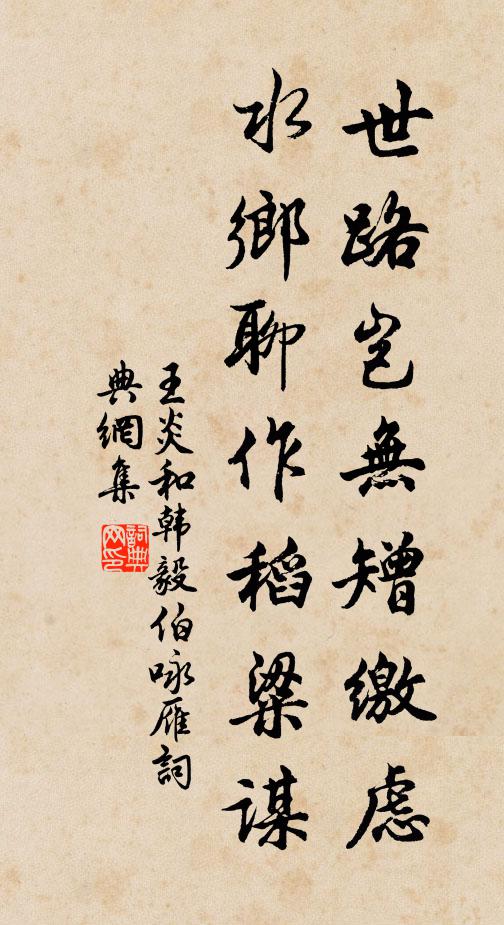 世路岂無矰繳慮
水鄉聊作稻粱謀
王炎和韩毅伯咏雁詞
典網集
詞典网印